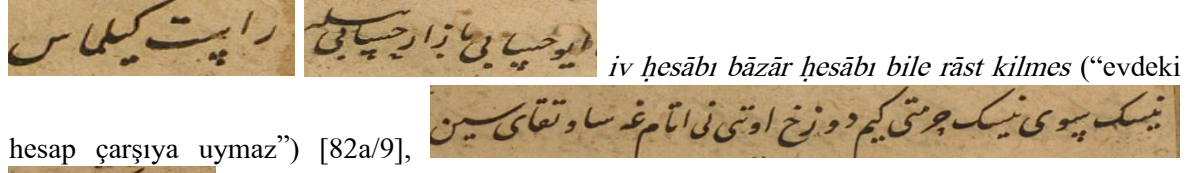 راست كيلماس ايو حسابى بازار حسابى بيله iv ḥesābı bāzār ḥesābı bile rāst kilmes (“evdeki
hesap çarşıya uymaz”) [82a/9], حرمتى كيم دوزخ اوتى نى اتام غه ساوتقاى سين